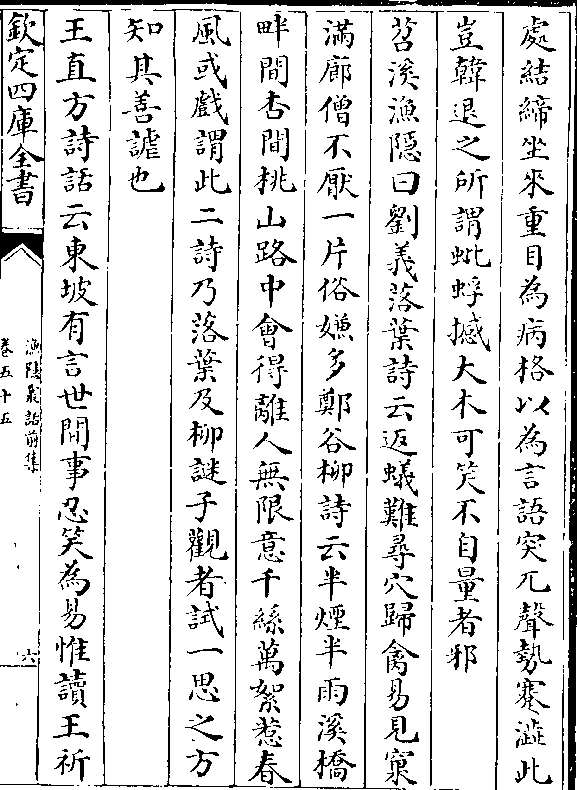 處結締坐來重目為病格以為言語突兀聲勢蹇澁此
豈韓退之所謂蚍蜉撼大木可笑不自量者邪
苕溪漁隱曰劉義落葉詩云返蟻難尋穴歸禽易見窠
滿廊僧不厭一片俗嫌多鄭谷柳詩云半煙半雨溪橋
畔間杏間桃山路中會得離人無限意千絲萬絮惹春
風或戲謂此二詩乃落葉及柳謎子觀者試一思之方
知其善謔也
王直方詩話云東坡有言世間事忍笑為易惟讀王祈
欽定四庫全書
漁隱叢話前集
卷五十五
六